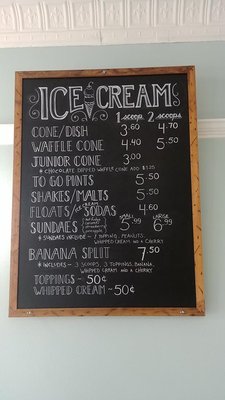 ICE CREAM
1 scoop 2 scoops
CONE/DISH 3.60 4.70
WAFFLE CONE 4.40 5.50
JUNIOR CONE 3.00
* CHOCOLATE DIPPED WAFFLE CONE ADD $1.25
TO GO PINTS 5.50
SHAKES/MALTS 5.50
FLOATS/ICE CREAM SODAS 4.60
SUNDAES SMALL 5.99 LARGE 6.99
* SUNDAES INCLUDE - 1 TOPPING, PEANUTS,
WHIPPED CREAM AND A CHERRY
BANANA SPLIT 7.50
* INCLUDES - 3 SCOOPS, 3 TOPPINGS, BANANA,
WHIPPED CREAM AND A CHERRY
TOPPINGS ~ 50¢
WHIPPED CREAM ~ 50¢